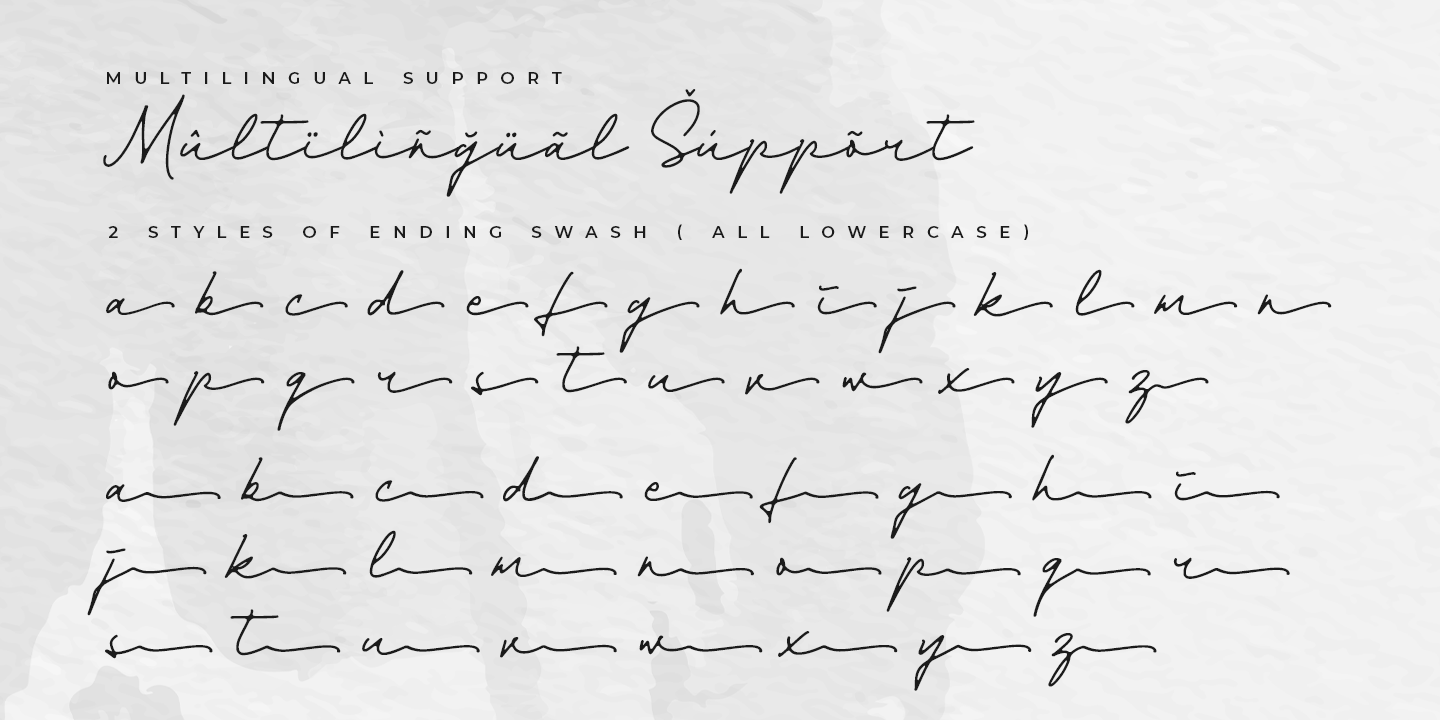 MULTILINGUAL SUPPORT
Mûltïlìñğüãl Šúppõrt
2 STYLES OF ENDING SWASH ( ALL LOWERCASE)
a b c d e f g h i j k l m n
o p q r s t u v w x y z
a b c d e f g h i
j k l m n o p q r
s t u v w x y z